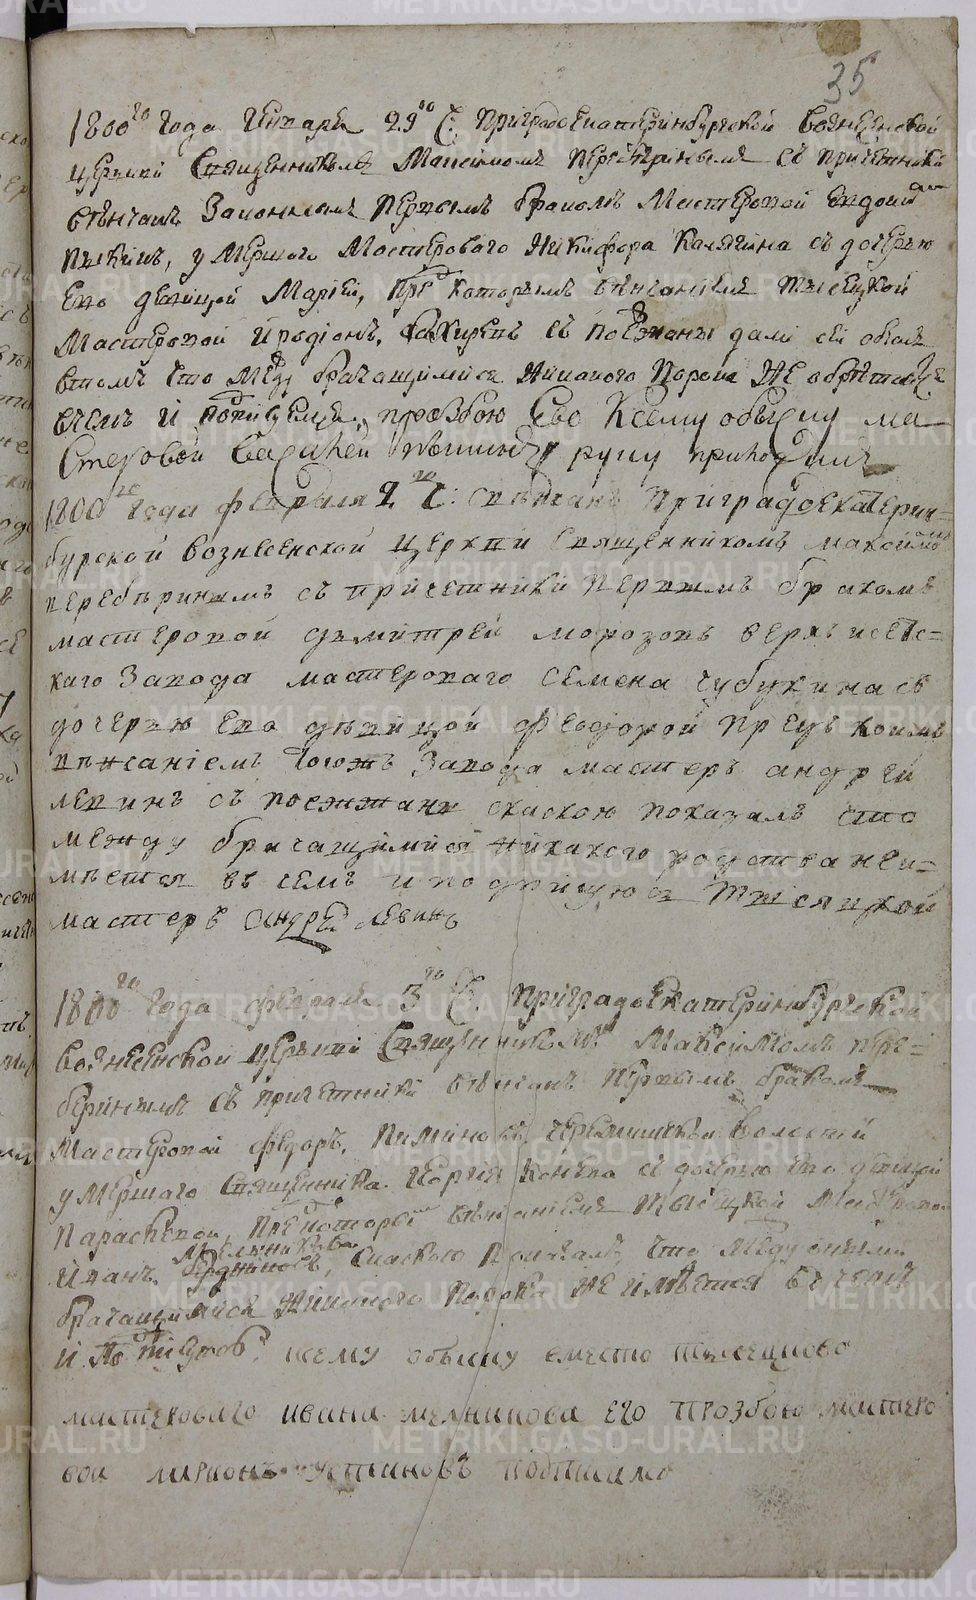 35
1800го года Генваря 29го Ч: Приградоекатеринбургской Вознесенской
церкви Священникомъ Максимомъ Переберинымъ съ причетники
венчанъ Законнымъ первымъ бракомъ Мастеровой
умершаго Мастероваго Никифора Калягина съ дочерью
Ево девицой Марией, пред которымъ венчаниемъ тысецкой
Мастеровой Иродионъ с поезжаны дали сей обыск
втомъ что межд брачащимися никакого порока не обретаетца
вчемъ и подписуемся, прозбою Ево Ксему обыску ма
стеровой руку приложилъ
1800го года февраля 2го Ч: венчанъ приградоекатерин=
бурской вознесенской церкви священникомъ максимомъ
переберинымъ съ причетники первымъ бракомъ
мастеровой димитрей морозовъ верхъ исетс=
каго завода мастероваго семена чубукина съ
дочерью ево девицой феодорой предъ коимъ
венчаниемъ тогожъ завода мастеръ андрей
левинъ съ поежжаны скаскою показалъ что
между брачащимися никакого родства неи=
меется въ семъ и подписуюсь тысяцкой
мастеръ андрей левинъ
1800го года февраля 3го Ч: приградоекатеринбургской
вознесенской церкви Священникомъ Максимомъ пере=
беринымъ съ причетники венчанъ первымъ бракомъ
Мастеровой федоръ Пиминовъ, черемишской волости
умершаго Священника Георгия Конева съ дочерью ево девицой
Параскевой, предкоторымъ венчаниемъ тысецкой Мастеровой
мельниковъ
Иванъ, скаскою показалъ, что между оными
брачащимися никакого порока не имеется въ чемъ
и подписуюсь ксему обыску вместо тысецково
мастероваго ивана мелникова его прозбою мастеро
вои ларионъ устиновъ подписалъ
METRIKI.GASO-URAL.RU